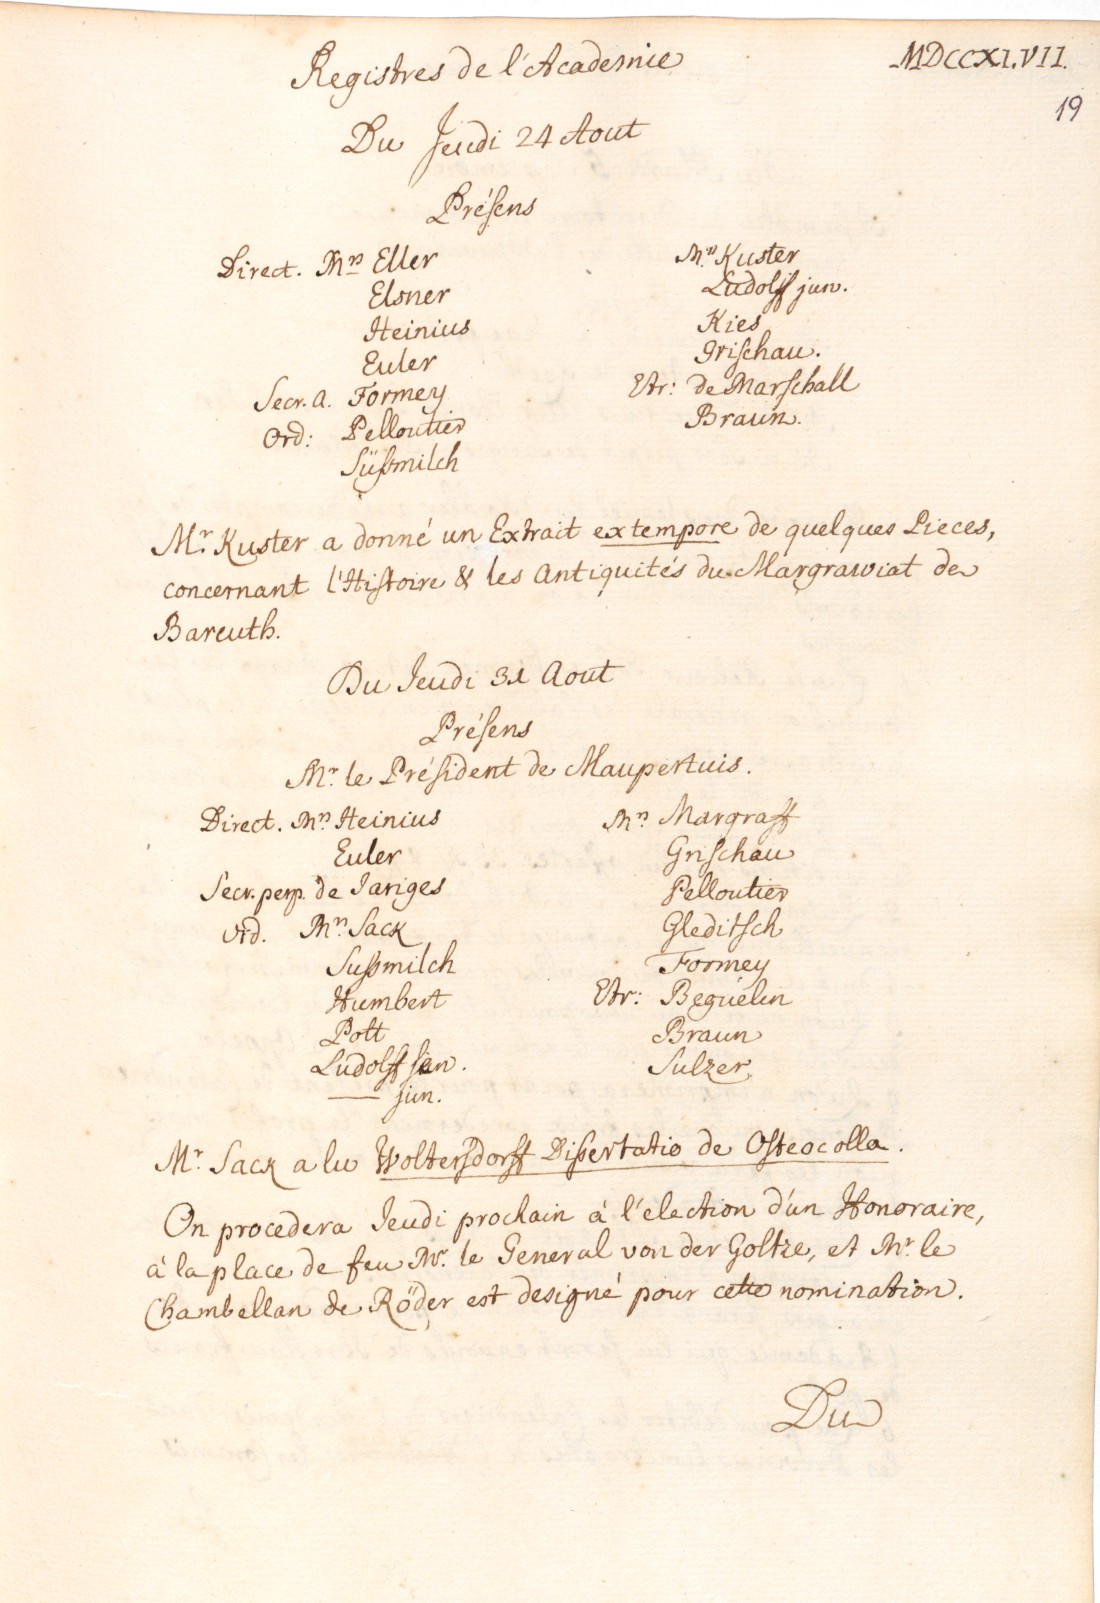 Registres de l'Academie
MDCCXLVII.
19
Du Jeudi 24 Aout
Présens
Direct. Mrs Eller
Elsner
Heinius
Euler
Secr. a. Formey
Ord: Pelloutier
Süßmilch
Mrs Kuster
Ludolff jun.
Kies
Grischau.
Etr: de Marschall
Braun.
Mr. Kuster a donné un Extrait extempore de quelques Pieces,
concernant l'Histoire & les Antiquités du Margraviat de
Bareuth.
Du Jeudi 31 Aout
Présens
Mr. le Président de Maupertuis.
Direct. Mrs Heinius
Euler
Secr. perp. de Jariges
Ord. Mrs Sack
Sußmilch
Humbert
Pott
Ludolff sen.
— jun.
Mrs Margraff
Grischau
Pelloutier
Gleditsch
Formey
Etr: Beguelin
Braun
Sulzer.
Mr. Sack a lu Woltersdorff Dissertatio de Osteocolla.
On procedera Jeudi prochain à l'election d'un Honoraire,
à la place de feu Mr. le General von der Goltze, et Mr. le
Chambellan de Röder est designé pour cette nomination.
Du